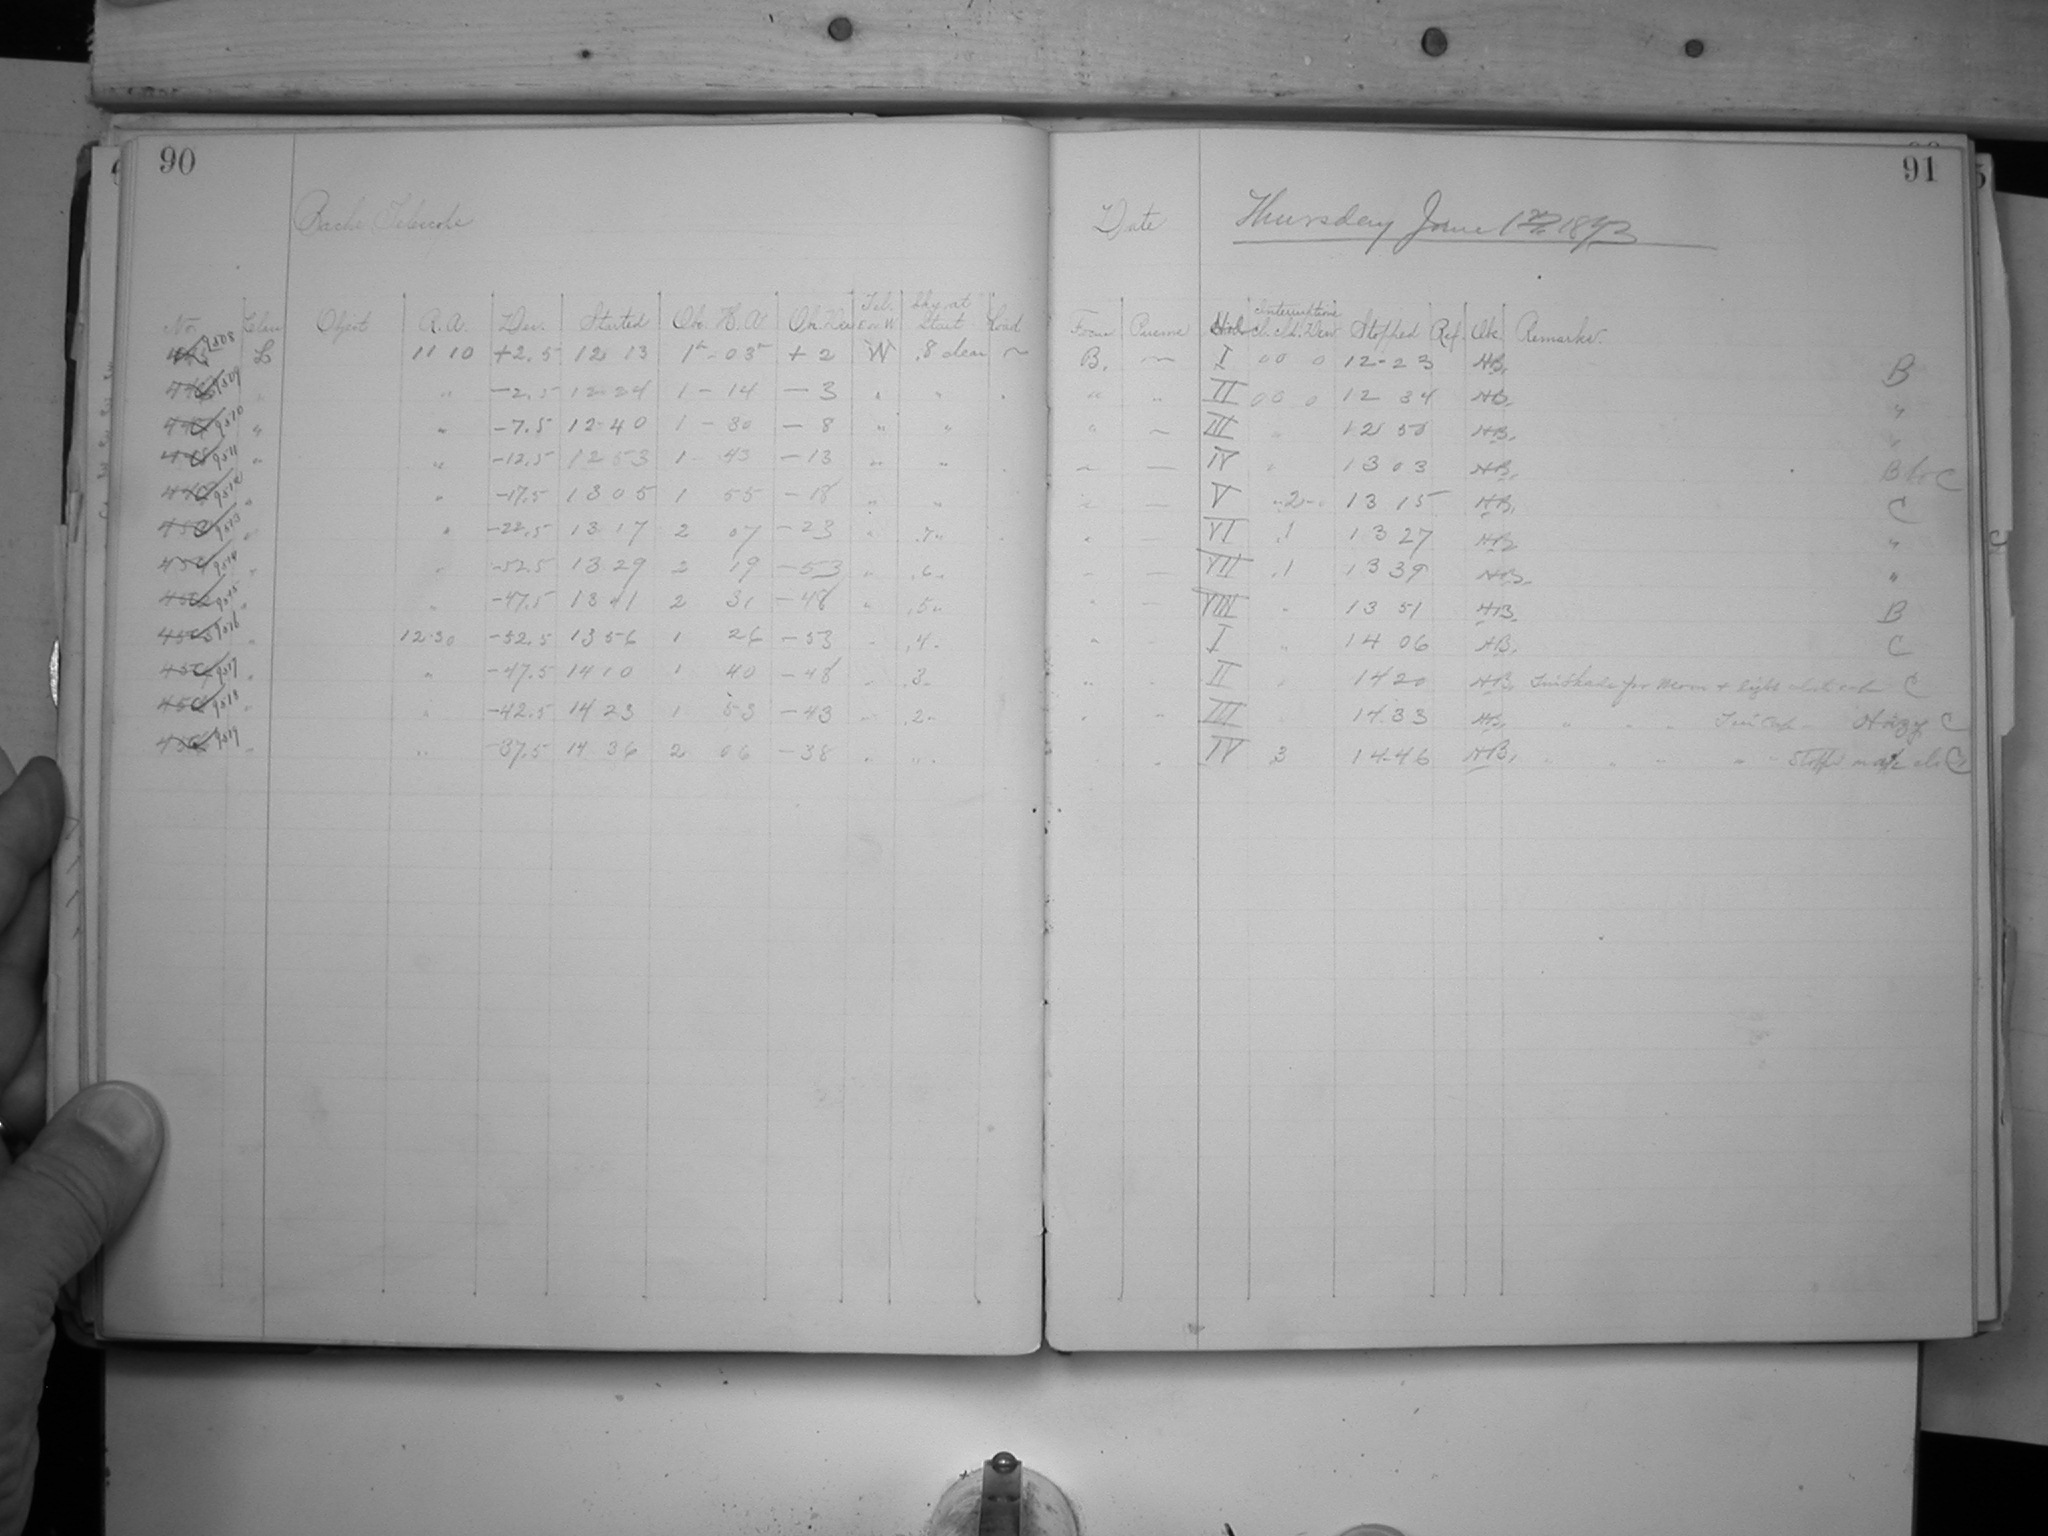 90
91
Bache Telescope
Date Thursday June 1st 1893
No. Class Object R.A. Dec. Started Ob. H.A. Ob. Dec Tel. E or W Sky at Start
Focus Prisms Interruptions Stopped Ref. Obs. Remarks.
9508 L 11 10 +2.5 12 13 1h-03m +2 W .8 clear ~ B. ~ I 0 0 0 12-23 HB. B
9509 " " -2.5 12 24 1-14 -3 " " " " II 0 0 0 12 34 HB. "
9510 " " -7.5 12 40 1-30 -8 " " " ~ III " 12 50 HB. "
9511 " " -12.5 12 53 1-43 -13 " " " — IV " 13 03 HB. B to C
9512 " " -17.5 13 05 1 55 -18 " " " — V 2 13 15 HB. C
9513 " " -22.5 13 17 2 07 -23 " .7 " " — VI .1 13 27 HB "
9514 " " -52.5 13 29 2 19 -53 " .6 " " — VII .1 13 39 HB. "
9515 " " -47.5 13 41 2 31 -48 " .5 " " — VIII " 13 51 HB. B
9516 " 12-30 -52.5 13 56 1 26 -53 " .4 " " I " 14 06 HB. C
9517 " " -47.5 14 10 1 40 -48 " .3 " " II " 14 20 HB. for Moon + light C
9518 " " -42.5 14 23 1 53 -43 " .2 " " III " 14.33 HB. " " " Hazy C
9519 " " -37.5 14 36 2 06 -38 " " " IV 3 14-46 HB. " " " " " C